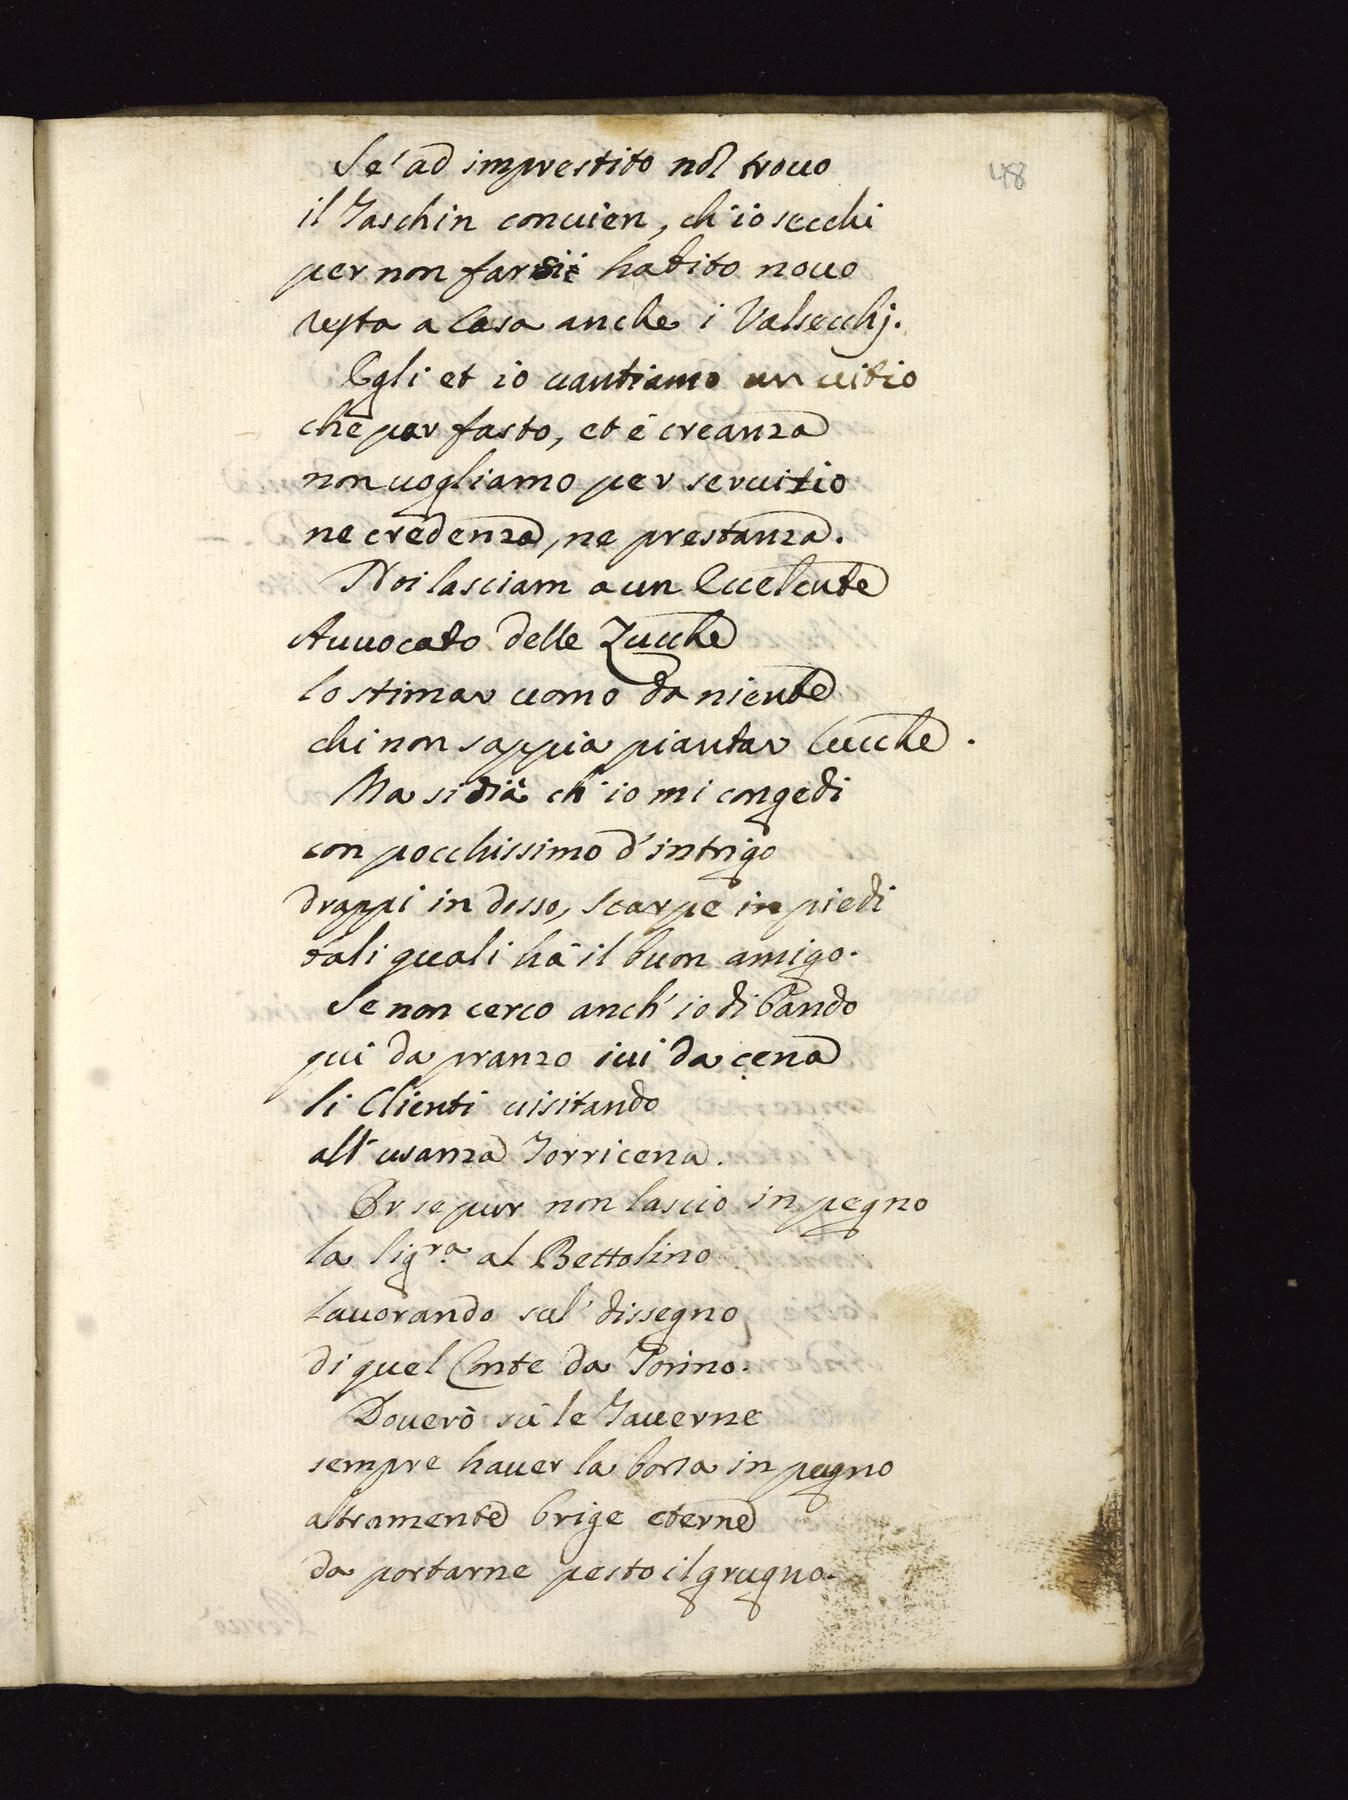 48
Se' ad imprestito nol trouo
il Taschin conuien, ch'io secchi
per non farsi habito nouo
resta a Casa anche i Valsecchj.
Egli et io uantiamo un uitio
che par fasto, et è creanza
non uogliamo per seruitio
ne credenza, ne prestanza.
Noi lasciam a un Eccelente
Auuocato delle Zucche
lo stimar uomo da niente
chi non sappia piantar Cucche.
Ma si dià ch'io mi congedi
con pocchissimo d'intrigo
drappi in dosso, scarpe in piedi
tali quali hà il buon amigo.
Se non cerco anch'io di bando
qui da pranzo iui da cena
li Clienti uisitando
all'usanza Torricena.
Or se pur non lascio in pegno
la Sig.ra al Bettolino
lauorando sul' dissegno
di quel Conte da Torino.
Douerò sù le Tauerne
sempre hauer la borsa in pugno
altramente brige eterne
da portarne pesto il grugno.